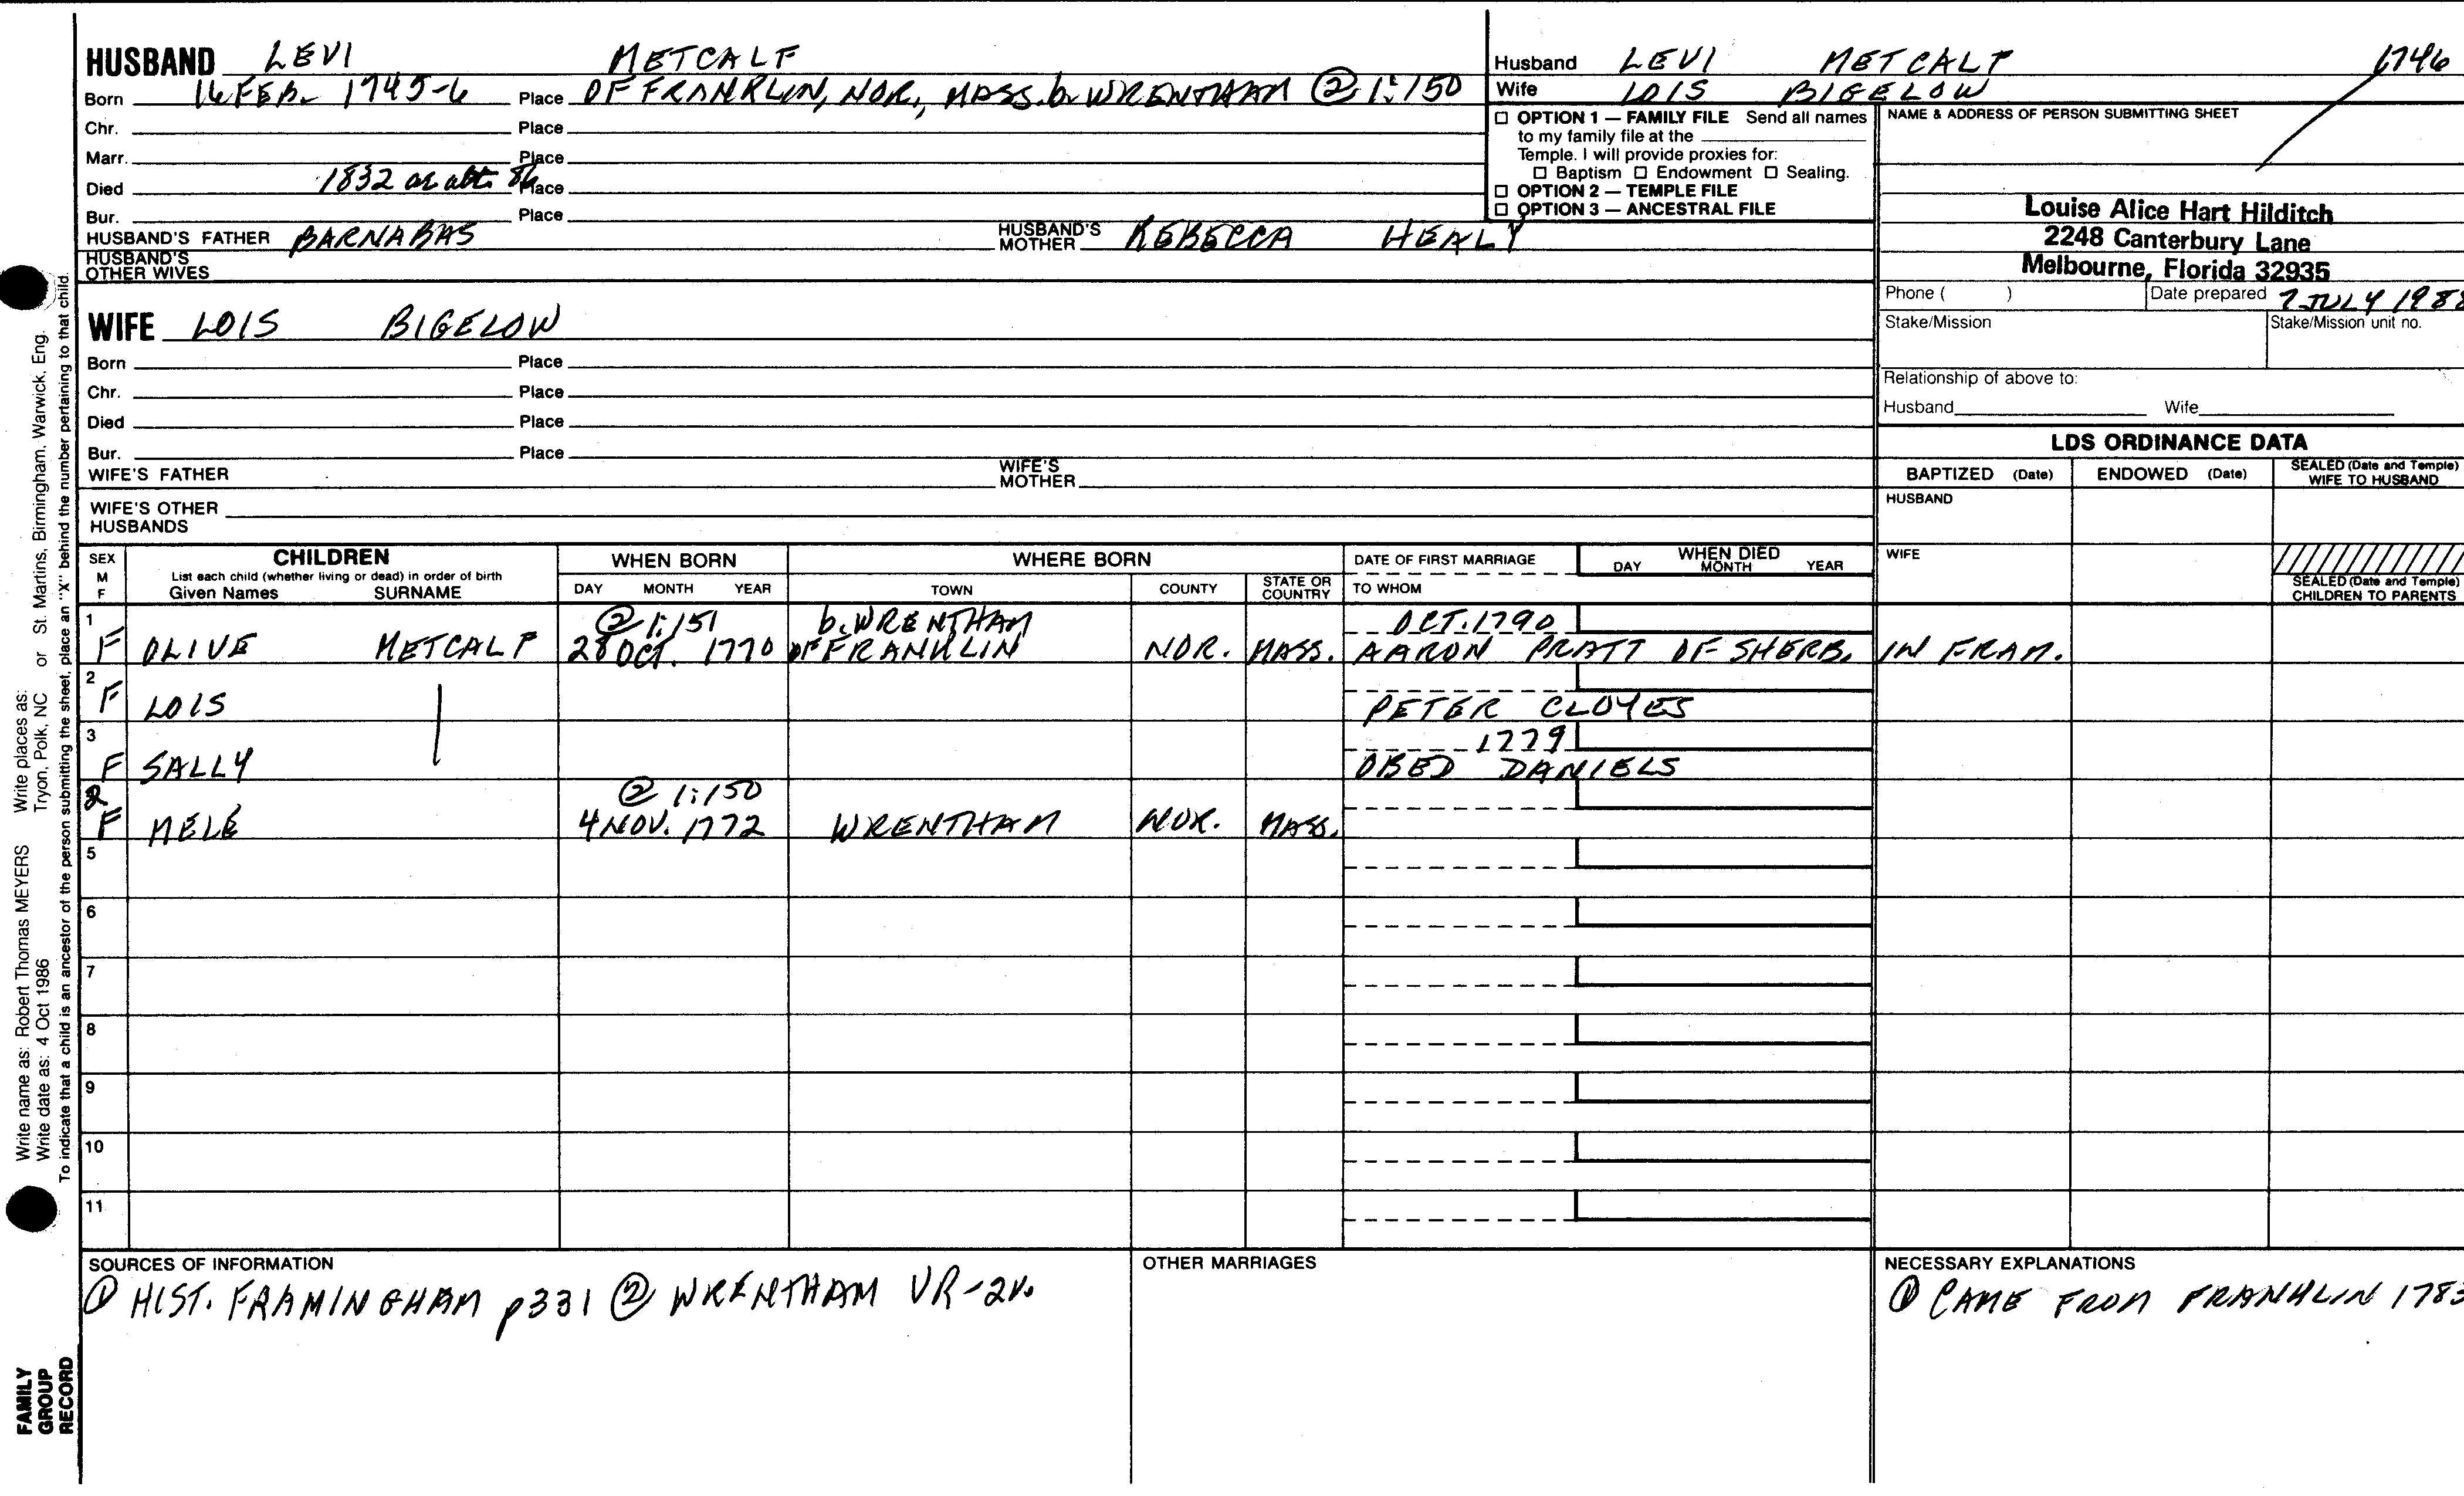 HUSBAND LEVI METCALF
Born 16 FEB. 1745-6 Place OF FRANKLIN, NOR., MASS. b. WRENTHAM ② 1:150
Chr. Place
Marr. Place
Died 1832 or abt. 86 Place
Bur. Place
HUSBAND'S FATHER BARNABAS HUSBAND'S MOTHER REBECCA HEALY
HUSBAND'S OTHER WIVES
WIFE LOIS BIGELOW
Born Place
Chr. Place
Died Place
Bur. Place
WIFE'S FATHER WIFE'S MOTHER
WIFE'S OTHER HUSBANDS
Husband LEVI METCALF 1746
Wife LOIS BIGELOW
☐ OPTION 1 — FAMILY FILE Send all names
to my family file at the
Temple. I will provide proxies for:
☐ Baptism ☐ Endowment ☐ Sealing.
☐ OPTION 2 — TEMPLE FILE
☐ OPTION 3 — ANCESTRAL FILE
NAME & ADDRESS OF PERSON SUBMITTING SHEET
Louise Alice Hart Hilditch
2248 Canterbury Lane
Melbourne, Florida 32935
Phone ( ) Date prepared 7 JULY 1988
Stake/Mission Stake/Mission unit no.
Relationship of above to:
Husband Wife
LDS ORDINANCE DATA
BAPTIZED (Date) ENDOWED (Date) SEALED (Date and Temple) WIFE TO HUSBAND
HUSBAND
WIFE
SEALED (Date and Temple) CHILDREN TO PARENTS
SEX M F CHILDREN WHEN BORN WHERE BORN DATE OF FIRST MARRIAGE WHEN DIED
List each child (whether living or dead) in order of birth
Given Names SURNAME DAY MONTH YEAR TOWN COUNTY STATE OR COUNTRY TO WHOM DAY MONTH YEAR
1 ② 1:151 b. WRENTHAM OCT. 1790
F OLIVE METCALF 28 OCT. 1770 OF FRANKLIN NOR. MASS. AARON PRATT OF SHERB. IN FRAM.
2
F LOIS PETER CLOYES
3 1779
F SALLY OBED DANIELS
2 ② 1:150
F MELE 4 NOV. 1772 WRENTHAM NOR. MASS.
5
6
7
8
9
10
11
SOURCES OF INFORMATION
① HIST. FRAMINGHAM p331 ② WRENTHAM VR-2v.
OTHER MARRIAGES
NECESSARY EXPLANATIONS
① CAME FROM FRANKLIN 1783
Write name as: Robert Thomas MEYERS Write places as: Tryon, Polk, NC or St. Martins, Birmingham, Warwick, Eng.
Write date as: 4 Oct 1986
To indicate that a child is an ancestor of the person submitting the sheet, place an "X" behind the number pertaining to that child.
FAMILY
GROUP
RECORD